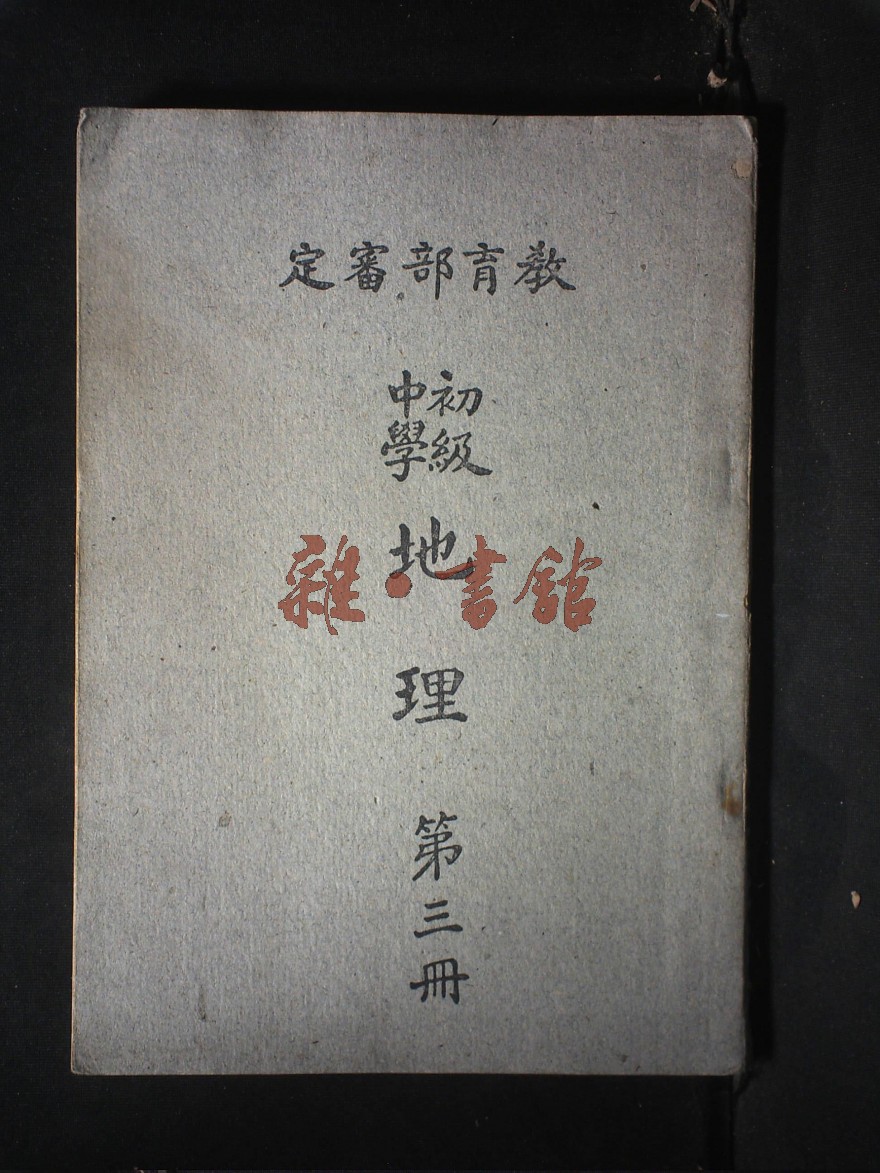 教育部審定
初級
中學
地理
第三冊
雜·書館